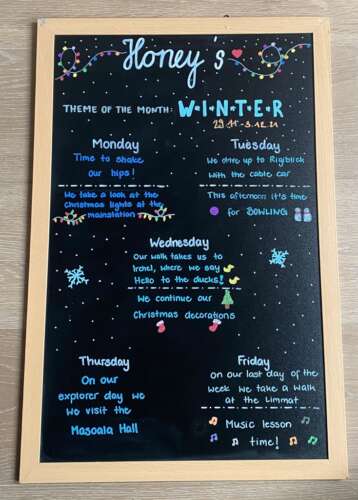 Honey's
THEME OF THE MONTH: W•I•N•T•E•R
29.11-3.12.21
Monday
Time to shake
our hips!
We take a look at the
Christmas lights at the
mainstation
Tuesday
We drive up to Rigiblick
with the cable car
This afternoon it's time
for BOWLING
Wednesday
Our walk takes us to
Irchel, where we say
Hello to the ducks!
We continue our
Christmas decorations
Thursday
On our
explorer day we
we visit the
Masoala Hall
Friday
On our last day of the
week we take a walk
at the Limmat
Music lesson
time!